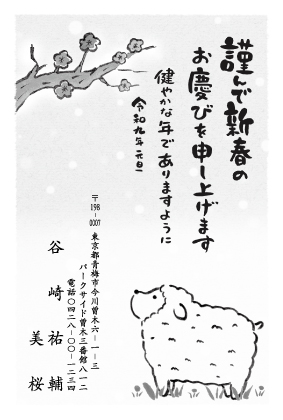 謹んで新春の
お慶びを申し上げます
健やかな年でありますように
令和九年元旦
〒198-0007
東京都青梅市今川曽木六-一-三
パークサイド曽木三番館八一二
電話〇四二八-〇〇-一二三四
谷崎 祐輔
美桜